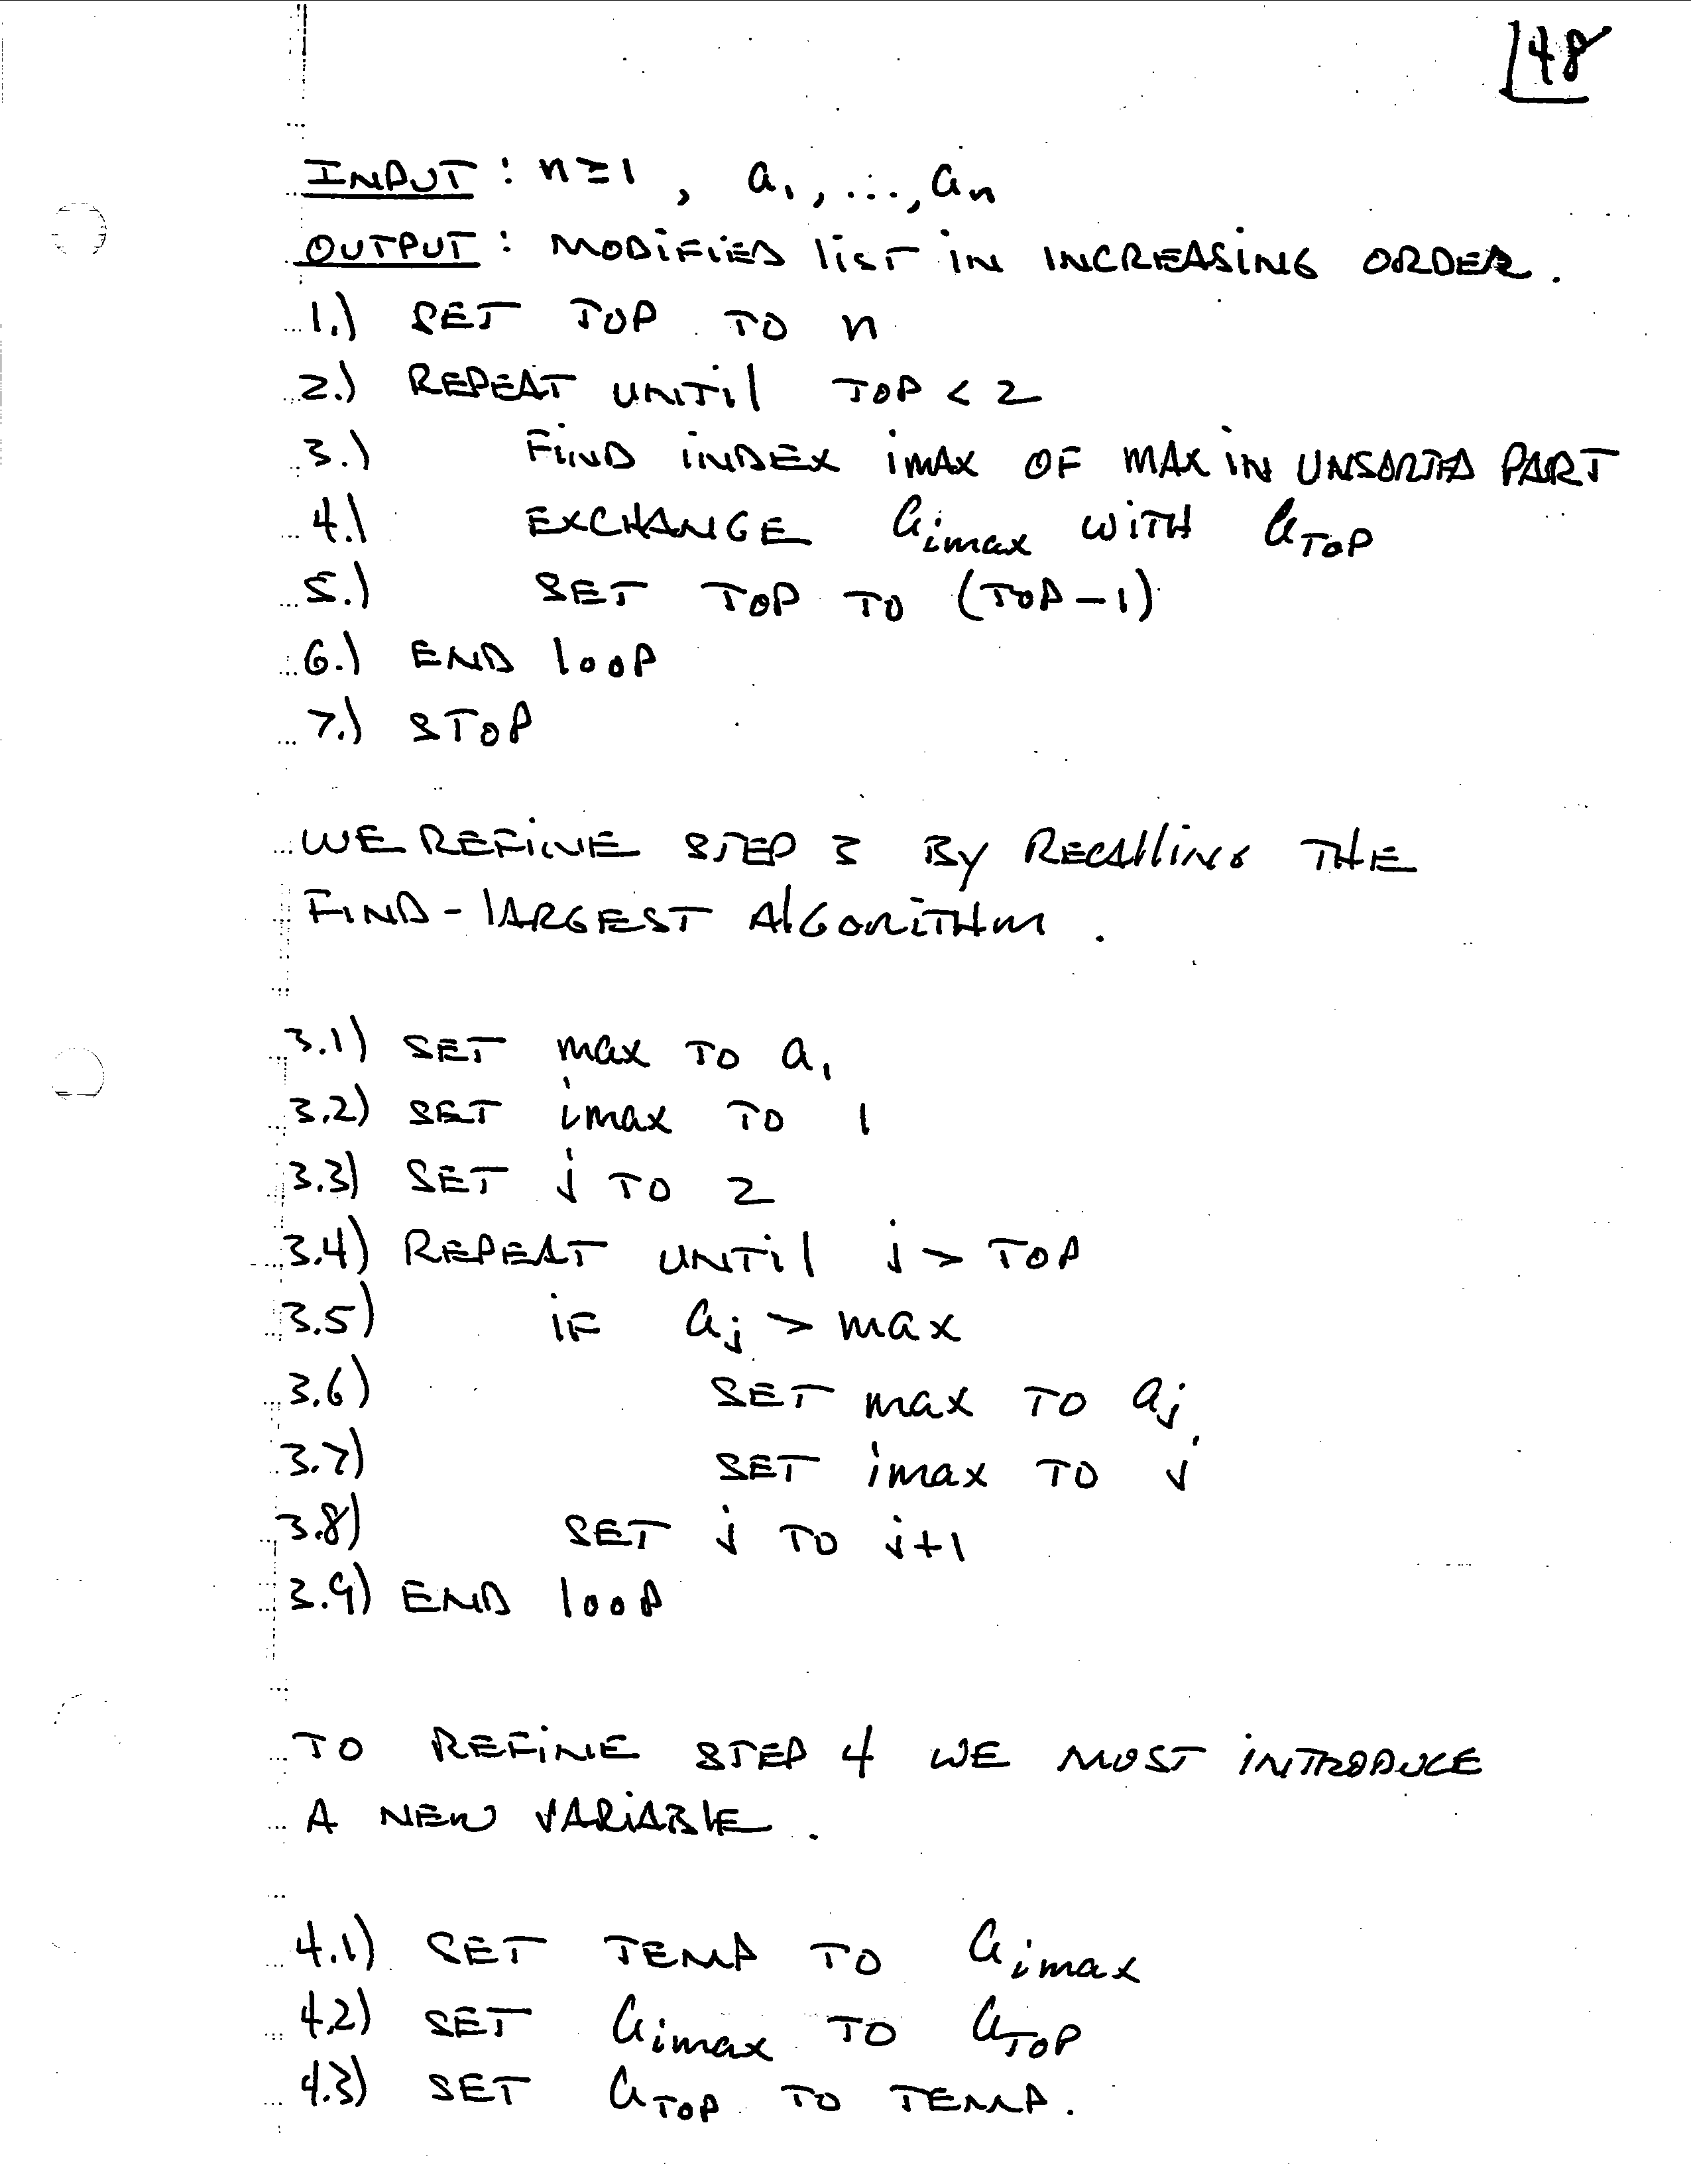 48
INPUT: n≥1, a₁,...,aₙ
OUTPUT: MODIFIED LIST IN INCREASING ORDER.
1.) SET TOP TO n
2.) REPEAT UNTIL TOP < 2
3.) FIND INDEX imax OF MAX IN UNSORTED PART
4.) EXCHANGE a_imax WITH a_TOP
5.) SET TOP TO (TOP-1)
6.) END LOOP
7.) STOP
WE REFINE STEP 3 BY RECALLING THE
FIND-LARGEST ALGORITHM.
3.1) SET max TO a₁
3.2) SET imax TO 1
3.3) SET j TO 2
3.4) REPEAT UNTIL j > TOP
3.5) IF a_j > max
3.6) SET max TO a_j
3.7) SET imax TO j
3.8) SET j TO j+1
3.9) END LOOP
TO REFINE STEP 4 WE MUST INTRODUCE
A NEW VARIABLE.
4.1) SET TEMP TO a_imax
4.2) SET a_imax TO a_TOP
4.3) SET a_TOP TO TEMP.